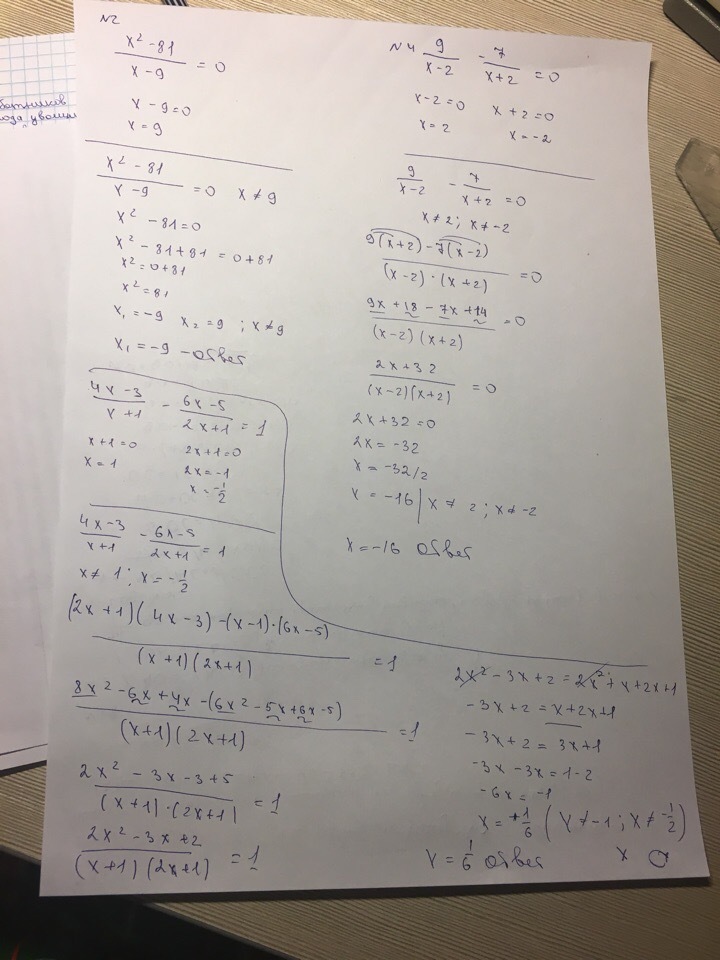 N2
x² - 81 / x - 9 = 0
x - 9 = 0
x = 9
x² - 81 / x - 9 = 0 x ≠ 9
x² - 81 = 0
x² - 81 + 81 = 0 + 81
x² = 0 + 81
x² = 81
x₁ = -9 x₂ = 9 ; x ≠ 9
x₁ = -9 - ответ
4x - 3 / x + 1 - 6x - 5 / 2x + 1 = 1
x + 1 = 0 2x + 1 = 0
x = 1 2x = -1
x = -1/2
4x - 3 / x + 1 - 6x - 5 / 2x + 1 = 1
x ≠ 1 ; x = -1/2
(2x + 1)(4x - 3) - (x - 1) · (6x - 5) / (x + 1)(2x + 1) = 1
8x² - 6x + 4x - (6x² - 5x + 6x - 5) / (x + 1)(2x + 1) = 1
2x² - 3x - 3 + 5 / (x + 1) · (2x + 1) = 1
2x² - 3x + 2 / (x + 1)(2x + 1) = 1
N4 9 / x - 2 - 7 / x + 2 = 0
x - 2 = 0 x + 2 = 0
x = 2 x = -2
9 / x - 2 - 7 / x + 2 = 0
x ≠ 2 ; x ≠ -2
9(x + 2) - 7(x - 2) / (x - 2) · (x + 2) = 0
9x + 18 - 7x + 14 / (x - 2)(x + 2) = 0
2x + 32 / (x - 2)(x + 2) = 0
2x + 32 = 0
2x = -32
x = -32/2
x = -16 | x ≠ 2 ; x ≠ -2
x = -16 ответ
2x² - 3x + 2 = 2x² + x + 2x + 1
-3x + 2 = x + 2x + 1
-3x + 2 = 3x + 1
-3x - 3x = 1 - 2
-6x = -1
x = +1/6 (x ≠ -1 ; x ≠ -1/2)
x = 1/6 ответ x